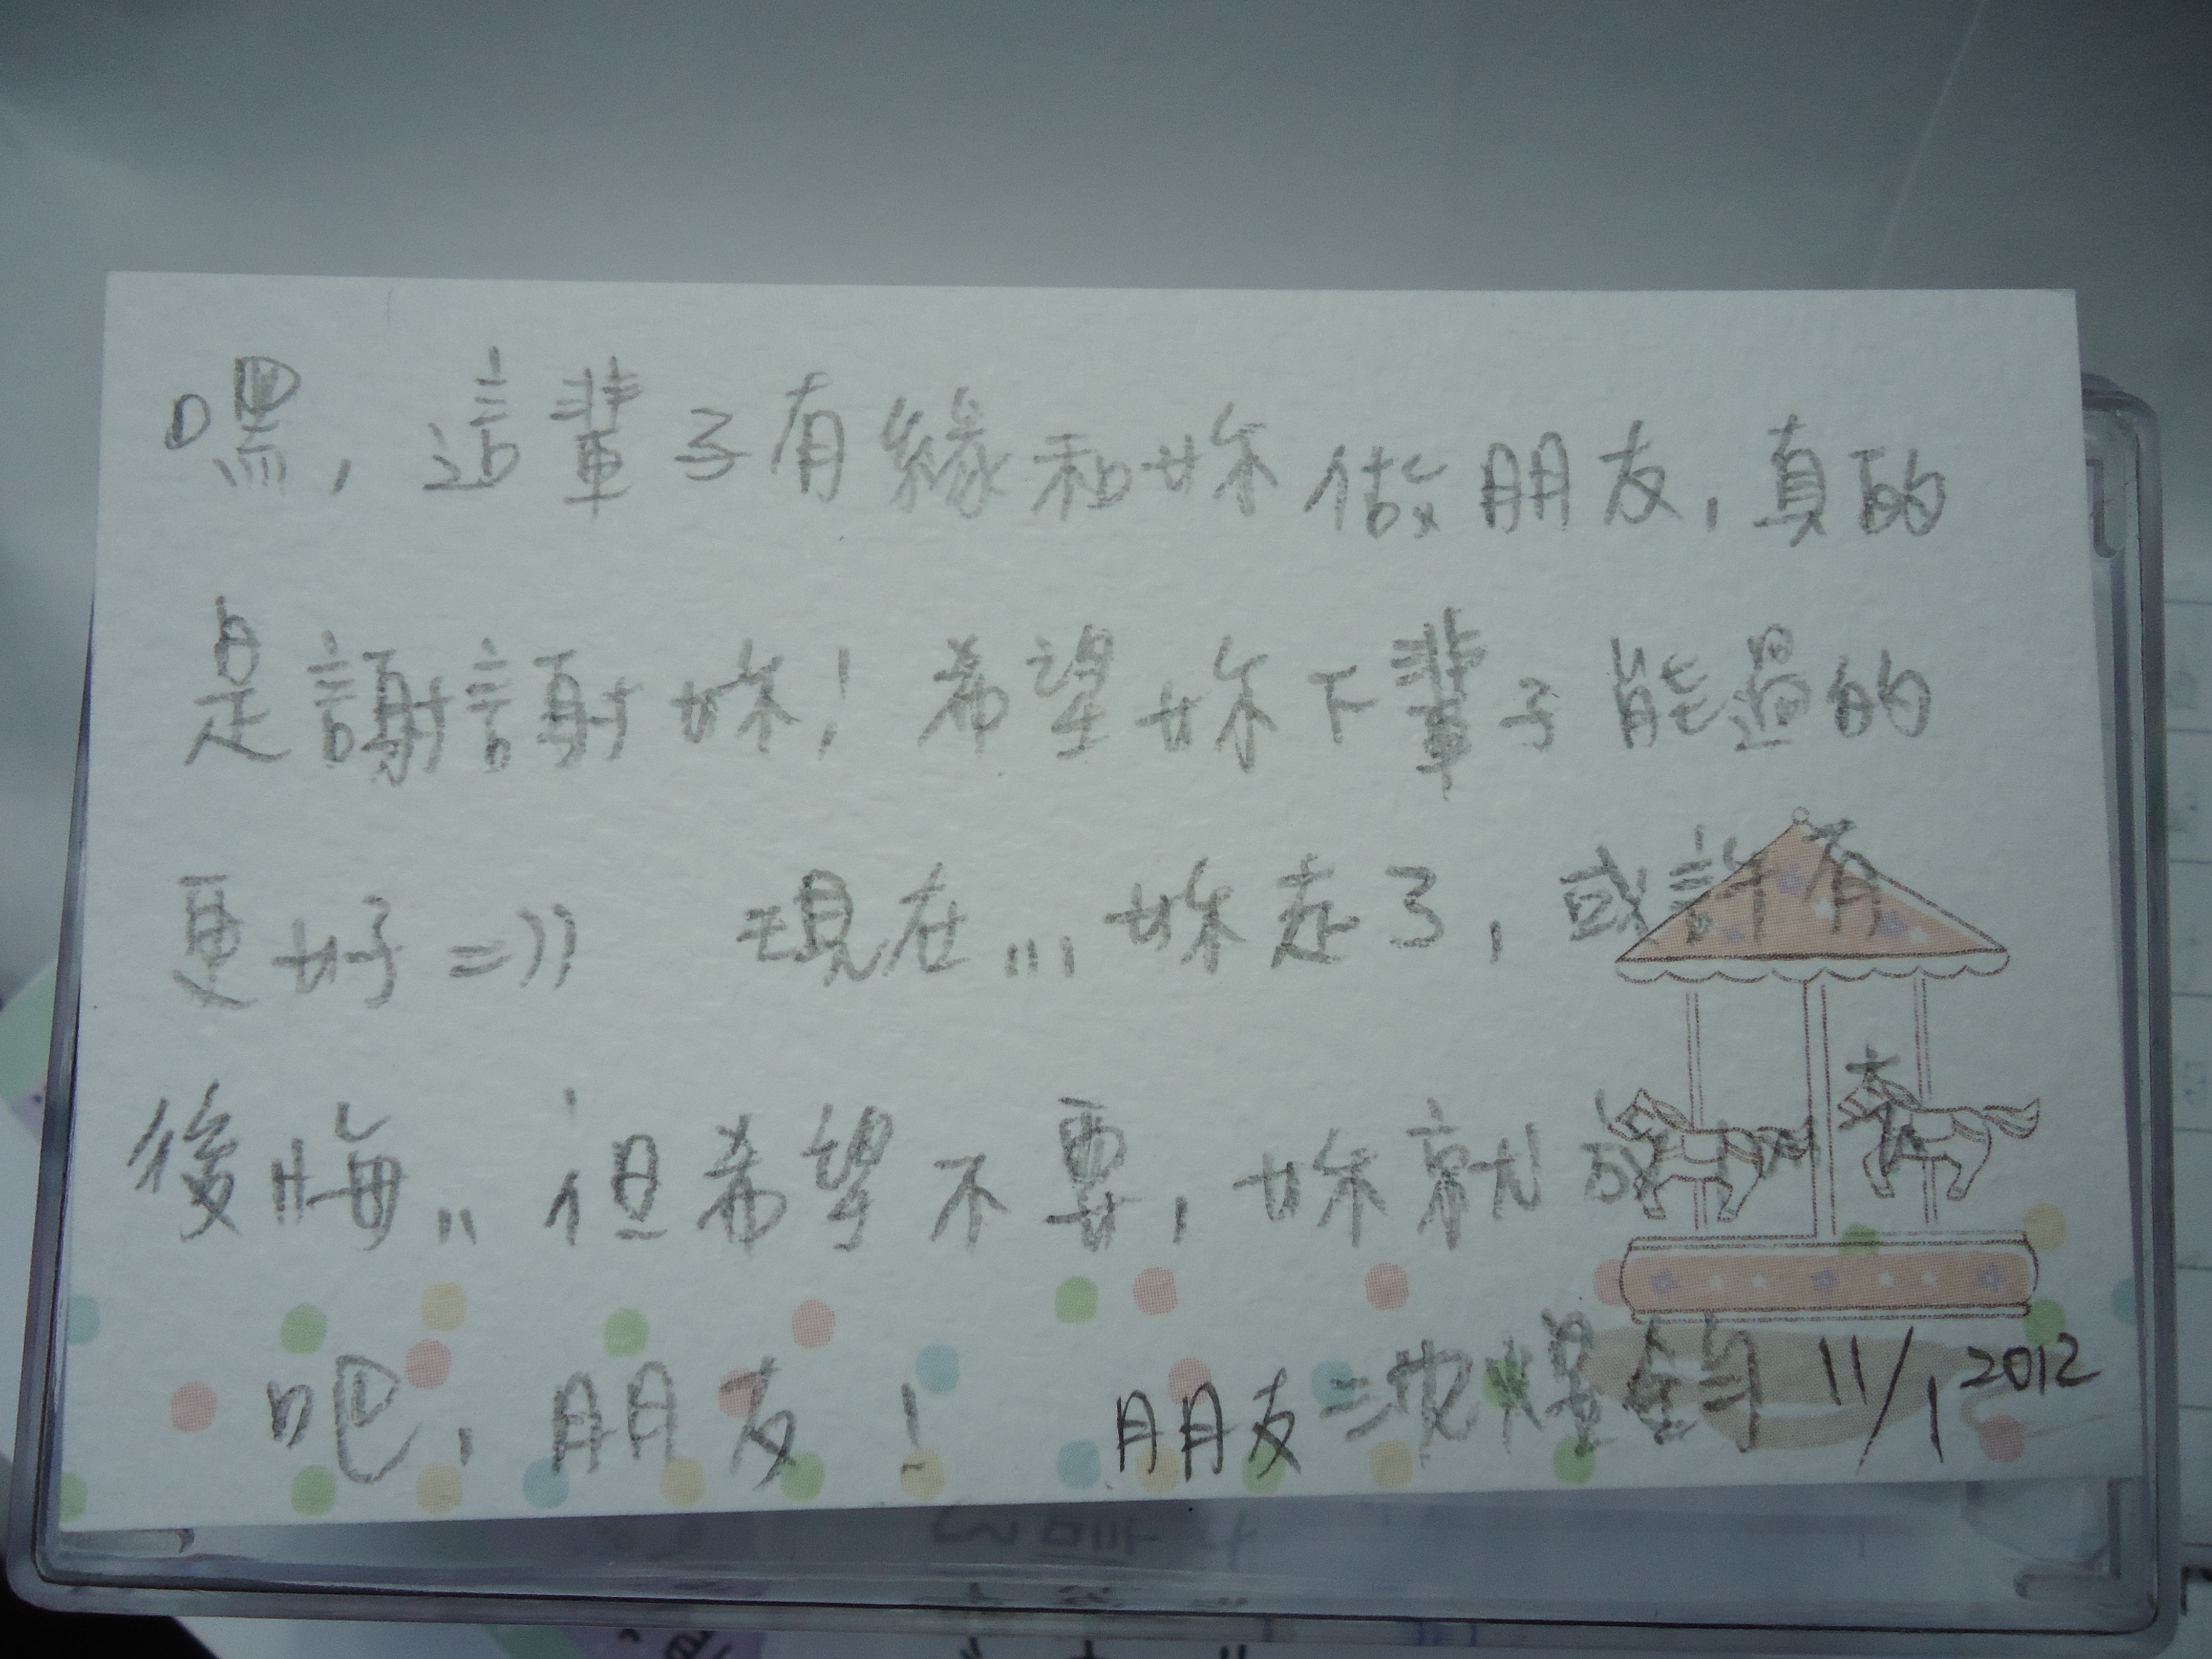 嘿，這輩子有緣和妳做朋友，真的
是謝謝妳！希望妳下輩子能過的
更好=))　現在...妳走了，或許有
後悔..但希望不要，妳就放心去
吧，朋友！　朋友 沈煜鈞 11/1 2012